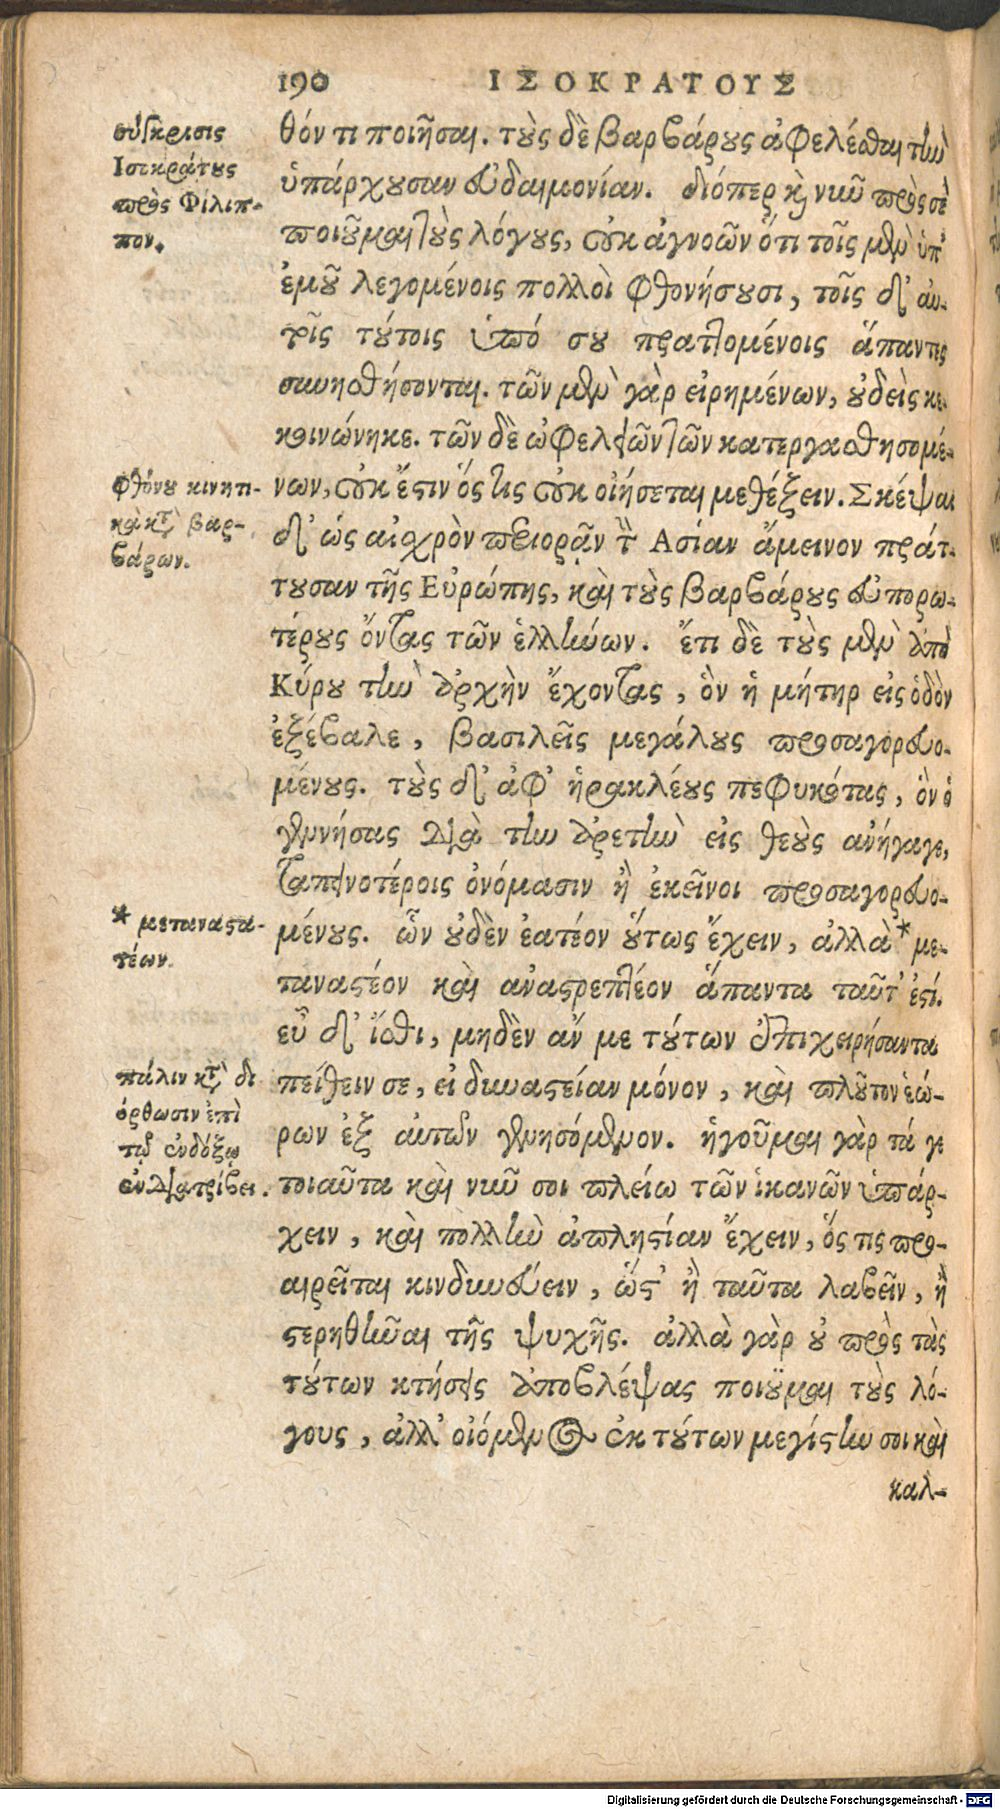 190 ΙΣΟΚΡΑΤΟΥΣ
σύγκρισις
Ισοκράτους
πρὸς Φίλιπ-
πον.
θόν τι ποιῆσαι. τοὺς δὲ βαρβάρους ἀφελέσθαι τὴν
ὑπάρχουσαν εὐδαιμονίαν. διόπερ καὶ νῦν πρὸς σὲ
ποιοῦμαι τοὺς λόγους, οὐκ ἀγνοῶν ὅτι τοῖς μὲν ὑπ'
ἐμοῦ λεγομένοις πολλοὶ φθονήσουσι, τοῖς δ' αὐ-
τοῖς τούτοις ὑπό σου πραττομένοις ἅπαντες
συνησθήσονται. τῶν μὲν γὰρ εἰρημένων, οὐδεὶς κε-
κοινώνηκε. τῶν δὲ ὠφελειῶν τῶν κατεργασθησομέ-
φθόνου κινητι-
κὰ κτ̀ βαρ-
βάρων.
νων, οὐκ ἔστιν ὅς τις οὐκ οἰήσεται μεθέξειν. Σκέψαι
δ' ὡς αἰσχρὸν περιορᾷν τὴν Ασίαν ἄμεινον πράτ-
τουσαν τῆς Εὐρώπης, καὶ τοὺς βαρβάρους εὐπορω-
τέρους ὄντας τῶν ἑλλήνων. ἔτι δὲ τοὺς μὲν ἀπὸ
Κύρου τὴν ἀρχὴν ἔχοντας, ὃν ἡ μήτηρ εἰς ὁδὸν
ἐξέβαλε, βασιλεῖς μεγάλους προσαγορευο-
μένους. τοὺς δ' ἀφ' ἡρακλέους πεφυκότας, ὃν ὁ
γεννήσας διὰ τὴν ἀρετὴν εἰς θεοὺς ἀνήγαγε,
ταπεινοτέροις ὀνόμασιν ἢ ἐκεῖνοι προσαγορευο-
* μεταναστα-
τέων.
μένους. ὧν οὐδὲν ἐατέον οὕτως ἔχειν, ἀλλὰ * με-
ταναστέον καὶ ἀναστρεπτέον ἅπαντα ταῦτ' ἐστί.
εὖ δ' ἴσθι, μηδὲν ἄν με τούτων ἐπιχειρήσαντα
πάλιν κτ̀ δι
όρθωσιν ἐπὶ
τῷ ἐνδόξῳ
ἐνδιατρίβει.
πείθειν σε, εἰ δυναστείαν μόνον, καὶ πλοῦτον ἑώ-
ρων ἐξ αὐτῶν γενησόμενον. ἡγοῦμαι γὰρ τά γε
τοιαῦτα καὶ νῦν σοι πλείω τῶν ἱκανῶν ὑπάρ-
χειν, καὶ πολλὴν ἀπληστίαν ἔχειν, ὅς τις προ-
αιρεῖται κινδυνεύειν, ὥστ' ἢ ταῦτα λαβεῖν, ἢ
στερηθῆναι τῆς ψυχῆς. ἀλλὰ γὰρ οὐ πρὸς τὰς
τούτων κτήσεις ἀποβλέψας ποιοῦμαι τοὺς λό-
γους, ἀλλ' οἰόμενος ἐκ τούτων μεγίστην σοι καὶ
καλ-
Digitalisierung gefördert durch die Deutsche Forschungsgemeinschaft - DFG